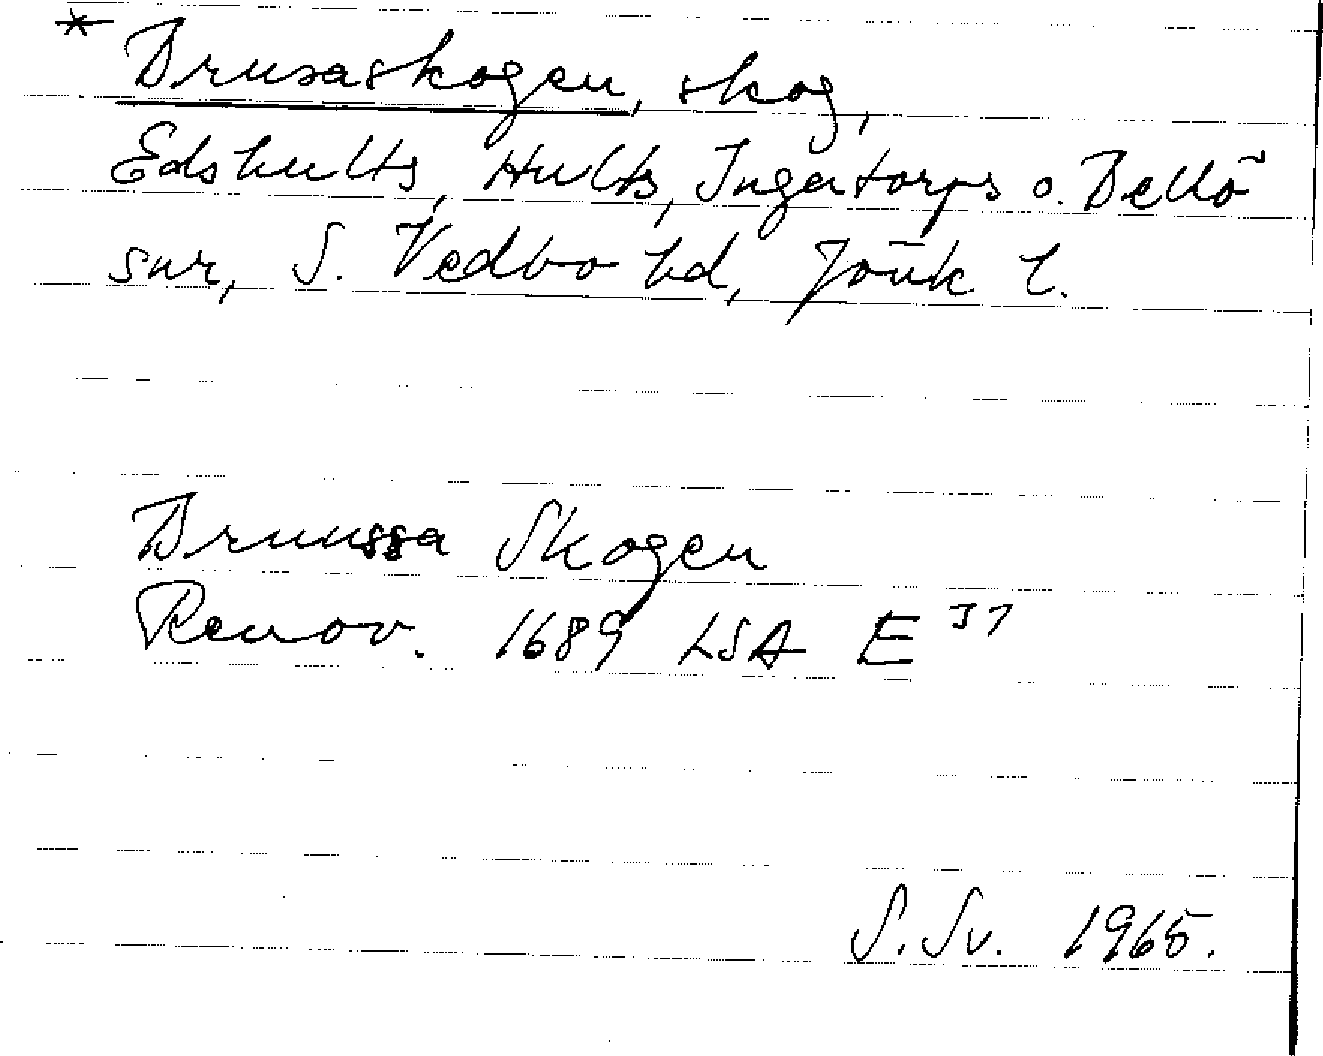 * Brusaskogen, skog,
Edshults, Hults, Ingatorps o. Bellö
snr, S. Vedbo hd, Jönk l.
Bruussa Skogen
Renov. 1689 LSA E 37
S. Sv. 1965.